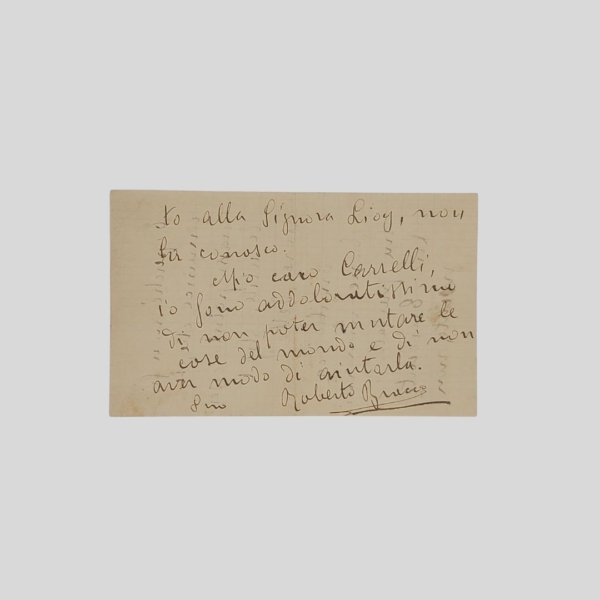 to alla Signora Lioy, non
la conosco.
Mio caro Carrelli,
io sono addoloratissimo
di non poter mutare le
cose del mondo e di non
aver modo di aiutarla.
Suo Roberto Bracco